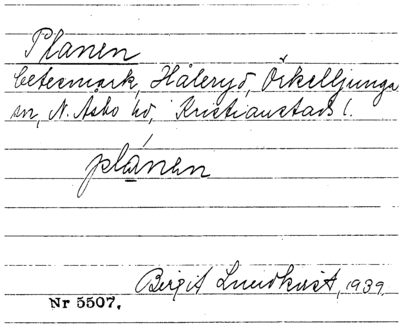 Planen
betesmark, Håleryd, Örkelljunga
sn, N. Åsbo hd, Kristianstads l.
plánen
Birgit Lundkvist, 1939.
Nr 5507.